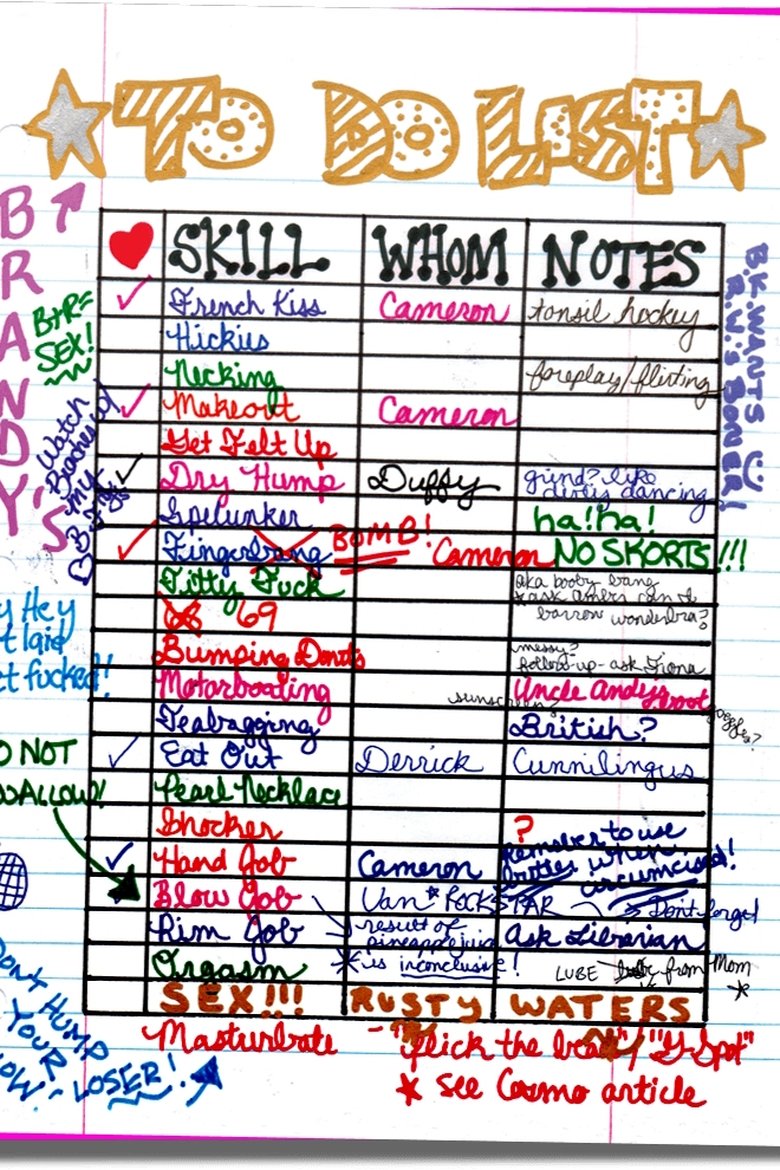 TO DO LIST
BRANDY'S
SKILL WHOM NOTES
French Kiss Cameron tonsil hockey
Hickies
Necking foreplay/flirting
Makeout Cameron
Get Felt Up
Dry Hump Duffy grind? like dirty dancing
Spelunker ha! ha!
Fingerbang BOMB! Cameron NO SKORTS!!!
Titty Fuck aka booby bang
*ask Amber can I
barrow wonderbra?
68 69
Bumping Donuts messy?
follow-up-ask Fiona
Motorboating sunscreen? Uncle Andy's boat goggles?
Teabagging British?
Eat Out Derrick Cunnilingus
Pearl Necklace
Shocker ?
Hand Job Cameron Remember to use
lotion when
circumcised!
Blow Job Van * ROCKSTAR Don't forget
Rim Job result of
pineapple juice Ask Librarian
Orgasm * is inconclusive! LUBE from Mom *
SEX!!! RUSTY WATERS
Masturbate "flick the bean"/"G-Spot"
* see Cosmo article
B+R=
SEX!
Watch
Beaches w/
my
B
y Hey
t laid
et fucked!
O NOT
SWALLOW!
DON'T HUMP
YOUR
LOSER!
B.K. WANTS
R.W.'s BONER!